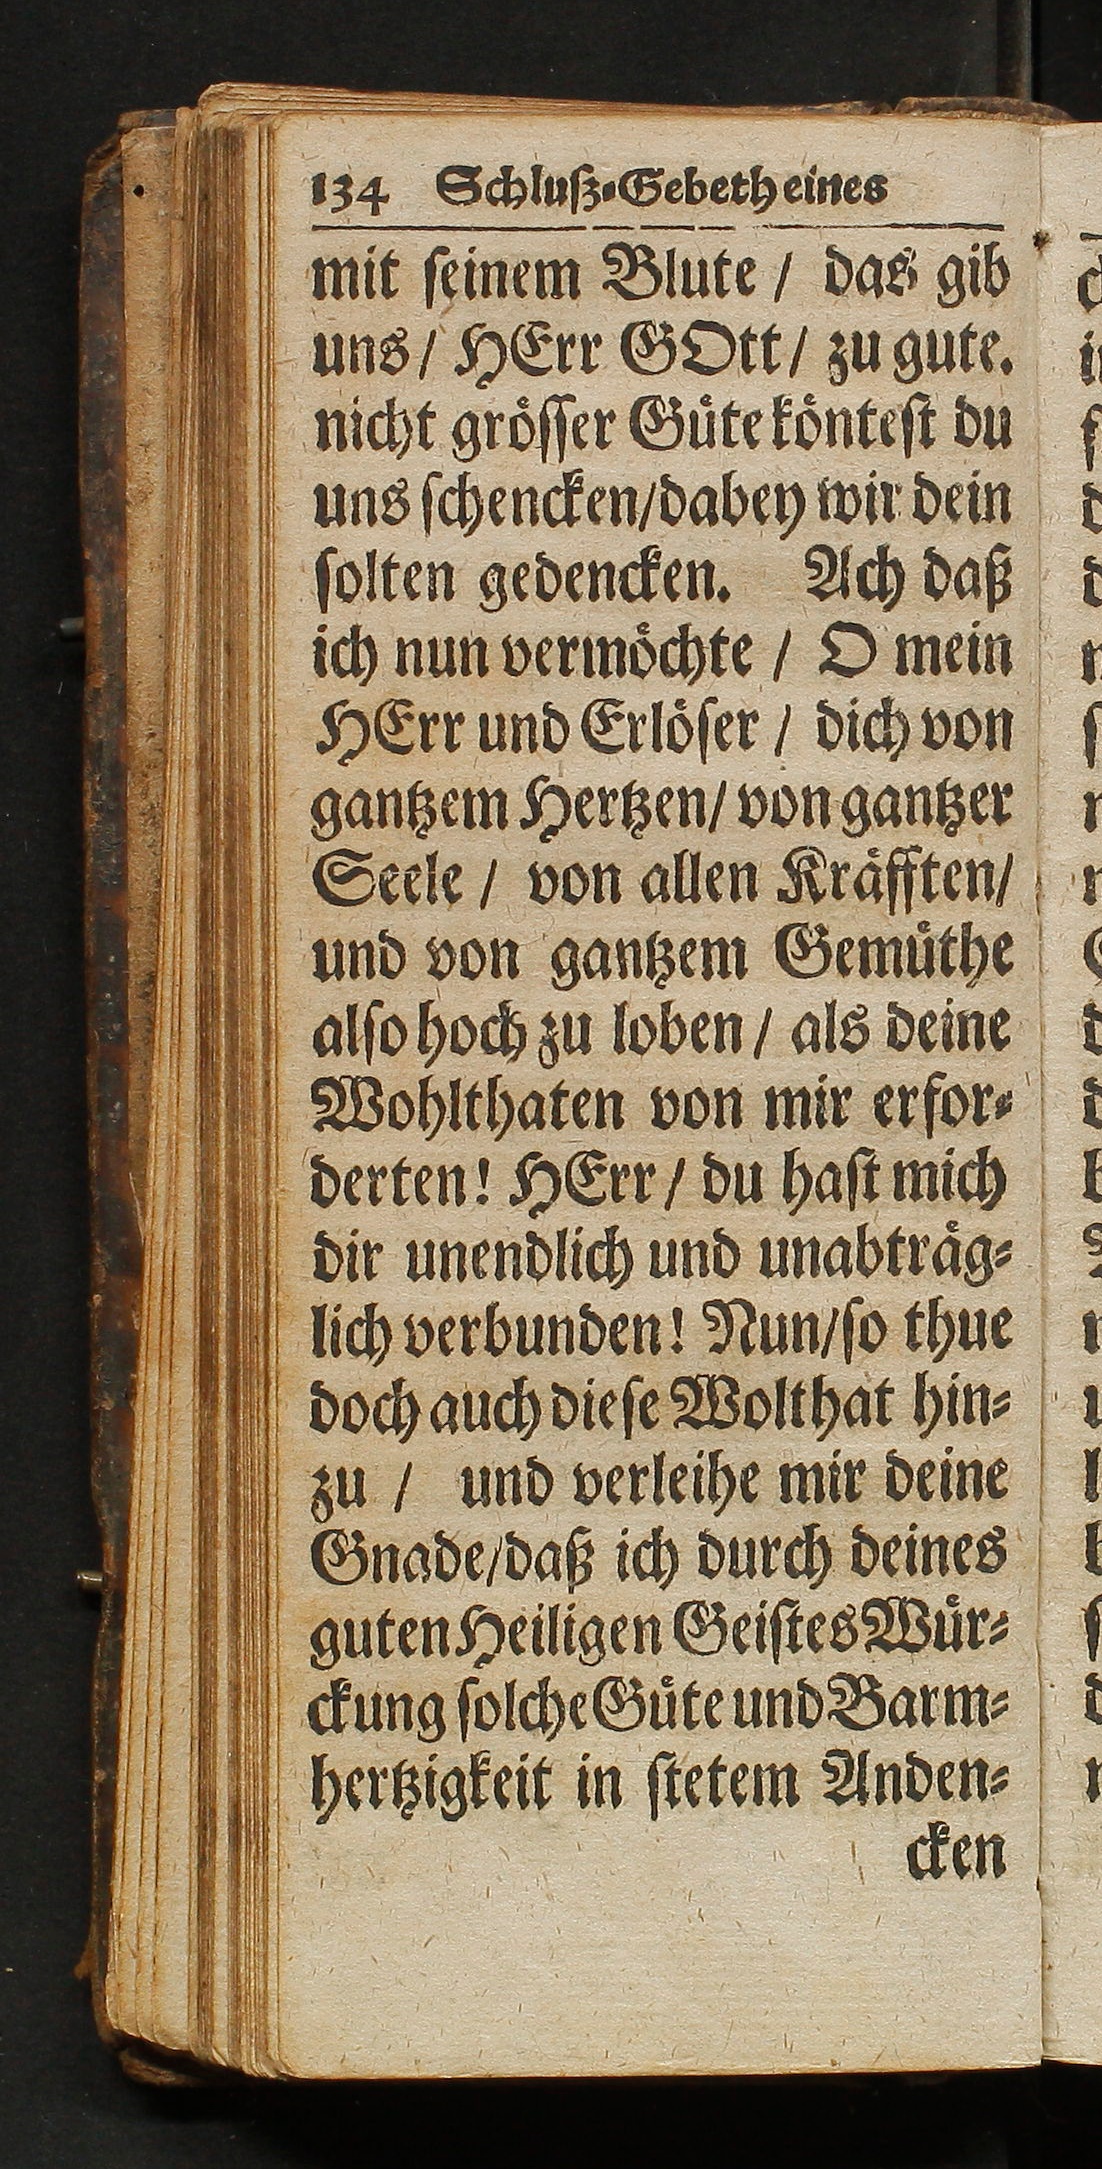 134 Schluſz⸗Gebeth eines
mit ſeinem Blute / das gib
uns / HErr GOtt / zu gute.
nicht groͤſſer Guͤte koͤnteſt du
uns ſchencken/dabey wir dein
ſolten gedencken. Ach daß
ich nun vermoͤchte / O mein
HErr und Erloͤſer / dich von
gantzem Hertzen/ von gantzer
Seele / von allen Kraͤfften/
und von gantzem Gemuͤthe
alſo hoch zu loben / als deine
Wohlthaten von mir erfor⸗
derten! HErr / du haſt mich
dir unendlich und unabtraͤg⸗
lich verbunden! Nun/ſo thue
doch auch dieſe Wolthat hin⸗
zu / und verleihe mir deine
Gnade/daß ich durch deines
guten Heiligen Geiſtes Wuͤr⸗
ckung ſolche Guͤte und Barm⸗
hertzigkeit in ſtetem Anden⸗
cken